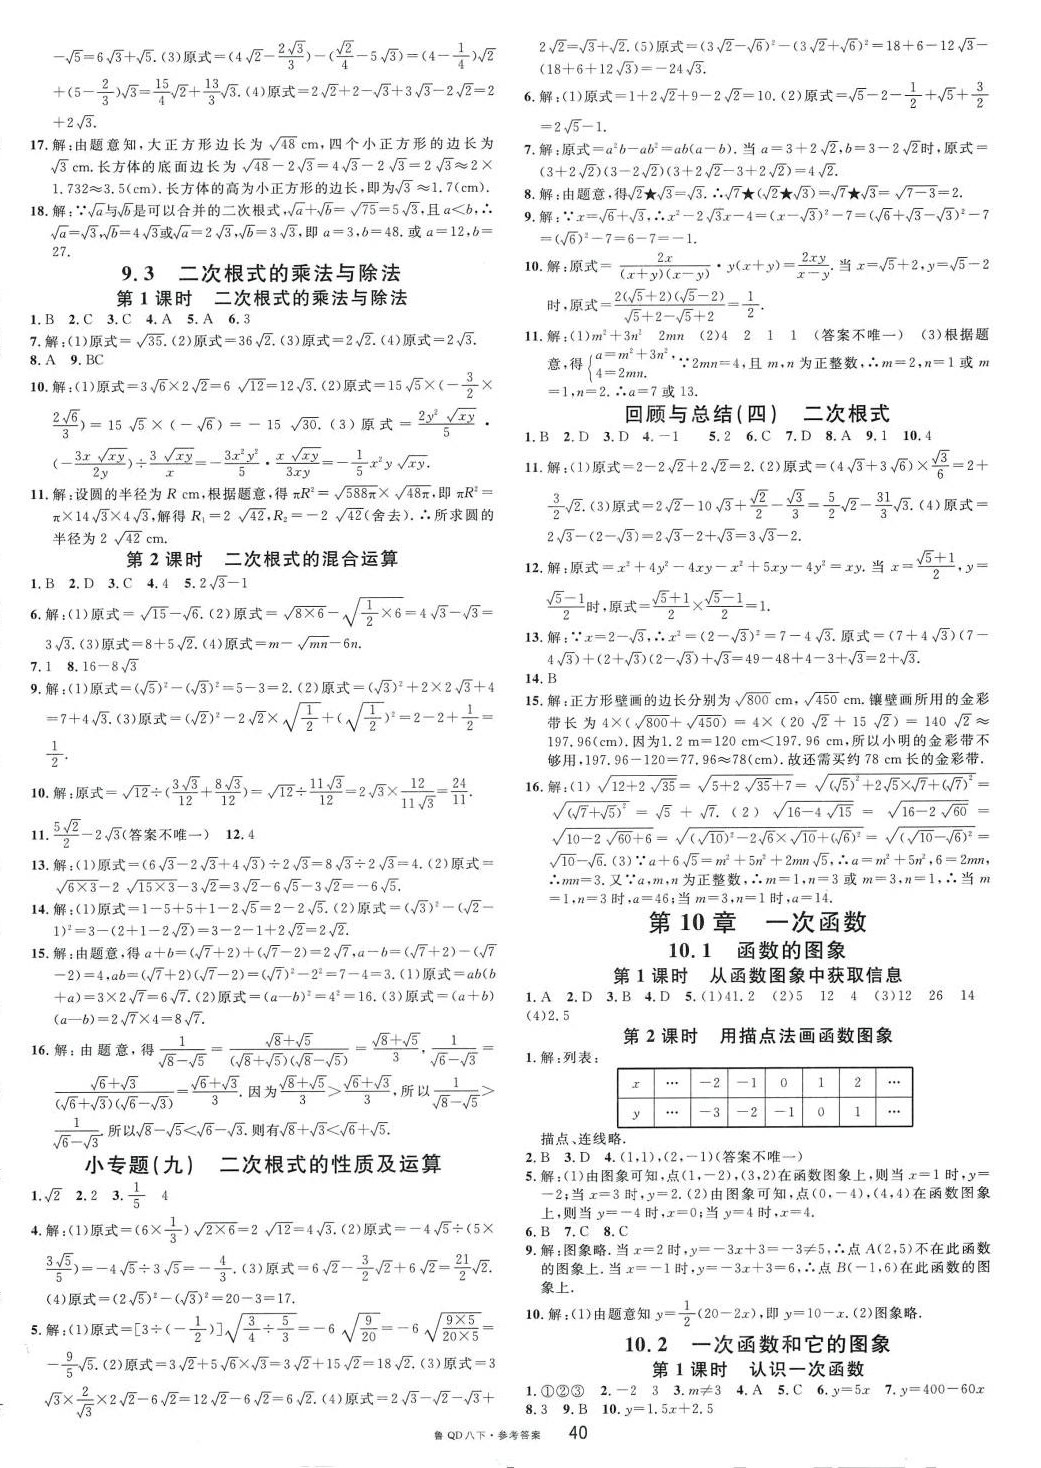 -√5=6√3+√5.(3)原式=(4√2-2√3/3)-(√2/4-5√3)=(4-1/4)√2
+(5-2/3)√3=15/4√2+13/3√3.(4)原式=2√2+2-√3+3√3-2√2=2
+2√3.
17.解:由题意知,大正方形边长为√48 cm,四个小正方形的边长为
√3 cm.长方体的底面边长为√48-2√3=4√3-2√3=2√3≈2×
1.732≈3.5(cm).长方体的高为小正方形的边长,即为√3≈1.7(cm).
18.解:∵√a与√b是可以合并的二次根式,√a+√b=√75=5√3,且a<b,∴
√a=√3,√b=4√3或√a=2√3,√b=3√3,即a=3,b=48.或a=12,b=
27.
9.3 二次根式的乘法与除法
第1课时 二次根式的乘法与除法
1.B 2.C 3.C 4.A 5.A 6.3
7.解:(1)原式=√35.(2)原式=36√2.(3)原式=2√2.(4)原式=2√3.
8.A 9.BC
10.解:(1)原式=3√6×2√2=6√12=12√3.(2)原式=15√5×(-3/2×
2√6/3)=15√5×(-√6)=-15√30.(3)原式=2y²√xy/5·
(-3x√xy/2y)÷3√xy/x=-3x²y²/5·x√xy/3xy=-1/5x²y√xy.
11.解:设圆的半径为R cm,根据题意,得πR²=√588π×√48π,即πR²=
π×14√3×4√3,解得R₁=2√42,R₂=-2√42(舍去).∴所求圆的
半径为2√42 cm.
第2课时 二次根式的混合运算
1.B 2.D 3.C 4.4 5.2√3-1
6.解:(1)原式=√15-√6.(2)原式=√8×6-√1/2×6=4√3-√3=
3√3.(3)原式=8+5√2.(4)原式=m-√mn-6n.
7.1 8.16-8√3
9.解:(1)原式=(√5)²-(√3)²=5-3=2.(2)原式=(√3)²+2×2√3+4
=7+4√3.(3)原式=(√2)²-2√2×√1/2+(√1/2)²=2-2+1/2=
1/2.
10.解:原式=√12÷(3√3/12+8√3/12)=√12÷11√3/12=2√3×12/11√3=24/11.
11.5√2/2-2√3(答案不唯一) 12.4
13.解:(1)原式=(6√3-2√3+4√3)÷2√3=8√3÷2√3=4.(2)原式=
√6×3-2√15×3-3√2=3√2-6√5-3√2=-6√5.
14.解:(1)原式=1-5+5+1-2√5=2-2√5.(2)原式=(√3)²-(√2-
1)²=3-(2+1-2√2)=3-2-1+2√2=2√2.
15.解:由题意,得a+b=(√7+2)+(√7-2)=2√7,a-b=(√7+2)-(√7
-2)=4,ab=(√7+2)(√7-2)=(√7)²-2²=7-4=3.(1)原式=ab(b
+a)=3×2√7=6√7.(2)原式=(a-b)²=4²=16.(3)原式=(a+b)
(a-b)=2√7×4=8√7.
16.解:由题意,得1/√8-√5=√8+√5/(√8+√5)(√8-√5)=√8+√5/3,1/√6-√3=
√6+√3/(√6+√3)(√6-√3)=√6+√3/3.因为√8+√5/3>√6+√3/3,所以1/√8-√5>
1/√6-√3.所以√8-√5<√6-√3.则有√8+√3<√6+√5.
小专题(九) 二次根式的性质及运算
1.√2 2.2 3.1/5 4
4.解:(1)原式=(6×1/3)√2×6=2√12=4√3.(2)原式=-4√5÷(5×
3√5/5)=-4√5÷3√5=-4/3.(3)原式=6√2-3/2√2+6√2=21/2√2.
(4)原式=(2√5)²-(√3)²=20-3=17.
5.解:(1)原式=[3÷(-1/2)]√3/4÷5/3=-6√9/20=-6√9×5/20×5=
-9/5√5.(2)原式=3√2+5√6×√3=3√2+15√2=18√2.(3)原式=3
√3×2/√3×2√2-6√2=12√2-6√2=6√2.(4)原式=2√3-√2-√3+
2√2=√3+√2.(5)原式=(3√2-√6)²-(3√2+√6)²=18+6-12√3-
(18+6+12√3)=-24√3.
6.解:(1)原式=1+2√2+9-2√2=10.(2)原式=√5-2-1/2+√5+3/2
=2√5-1.
7.解:原式=a²b-ab²=ab(a-b).当a=3+2√2,b=3-2√2时,原式=
(3+2√2)(3-2√2)(3+2√2-3+2√2)=4√2.
8.解:由题意,得√2★√3=√3.∴√7★(√2★√3)=√7★√3=√7-3=2.
9.解:∵x=√6+√3,∴x²-2√3x-4=(x-√3)²-7=(√6+√3-√3)²-7
=(√6)²-7=6-7=-1.
10.解:原式=2x/(x+y)(x-y)·y(x+y)=2xy/x-y.当x=√5+2,y=√5-2
时,原式=2(√5+2)(√5-2)/√5+2-√5+2=1/2.
11.解:(1)m²+3n² 2mn (2)4 2 1 1 (答案不唯一) (3)根据题
意,得{a=m²+3n², 4=2mn. ∵2mn=4,且m,n为正整数,∴m=2,n=1或m
=1,n=2.∴a=7或13.
回顾与总结(四) 二次根式
1.B 2.D 3.D 4.-1 5.2 6.C 7.D 8.A 9.1 10.4
11.解:(1)原式=2-2√2+2√2=2.(2)原式=(4√3+3√6)×√3/6=2+
3/2√2.(3)原式=2√2-10√3+√2/2-√3/3=5/2√2-31/3√3.(4)原式=
2√3-(2-√3)=2√3-2+√3=3√3-2.
12.解:原式=x²+4y²-4xy-x²+5xy-4y²=xy.当x=√5+1/2,y=
√5-1/2时,原式=√5+1/2×√5-1/2=1.
13.解:∵x=2-√3,∴x²=(2-√3)²=7-4√3.原式=(7+4√3)(7-
4√3)+(2+√3)(2-√3)+√3=49-48+4-3+√3=2+√3.
14.B
15.解:正方形壁画的边长分别为√800 cm,√450 cm.镶壁画所用的金彩
带长为4×(√800+√450)=4×(20√2+15√2)=140√2≈
197.96(cm).因为1.2 m=120 cm<197.96 cm,所以小明的金彩带不
够用,197.96-120=77.96≈78(cm).故还需买约78 cm长的金彩带.
16.解:(1)√12+2√35=√5+2√35+7=√(√5)²+2√5×√7+(√7)²=
√(√7+√5)²=√5+√7.(2)√16-4√15=√16-2√60=
√10-2√60+6=√(√10)²-2√6×√10+(√6)²=√(√10-√6)²=
√10-√6.(3)∵a+6√5=m²+5n²+2mn√5,∴a=m²+5n²,6=2mn,
∴mn=3.又∵a,m,n为正整数,∴m=1,n=3或m=3,n=1,∴当m
=1,n=3时,a=46;当m=3,n=1时,a=14.
第10章 一次函数
10.1 函数的图象
第1课时 从函数图象中获取信息
1.A 2.D 3.B 4.D 5.(1)41.2 (2)5 12 4 (3)12 26 14
(4)2.5
第2课时 用描点法画函数图象
1.解:列表:
x … -2 -1 0 1 2 …
y … -3 -2 -1 0 1 …
描点、连线略.
2.B 3.D 4.(1,1),(2,-1)(答案不唯一)
5.解:(1)由图象可知,点(1,-2),(3,2)在函数图象上,则当x=1时,y=
-2;当x=3时,y=2.(2)由图象可知,点(0,-4),(4,4)在函数图象
上,则当y=-4时,x=0;当y=4时,x=4.
6.B 7.C 8.C
9.解:图象略.当x=2时,y=-3x+3=-3≠5,∴点A(2,5)不在此函数
的图象上.当x=-1时,y=-3x+3=6,∴点B(-1,6)在此函数的图
象上.
10.解:(1)由题意知y=1/2(20-2x),即y=10-x.(2)图象略.
10.2 一次函数和它的图象
第1课时 认识一次函数
1.①②③ 2.-2 3 3.m≠3 4.A 5.C 6.y=5x 7.y=400-60x
8.3 9.B 10.y=1.5x+2.5
鲁QD八下·参考答案 40